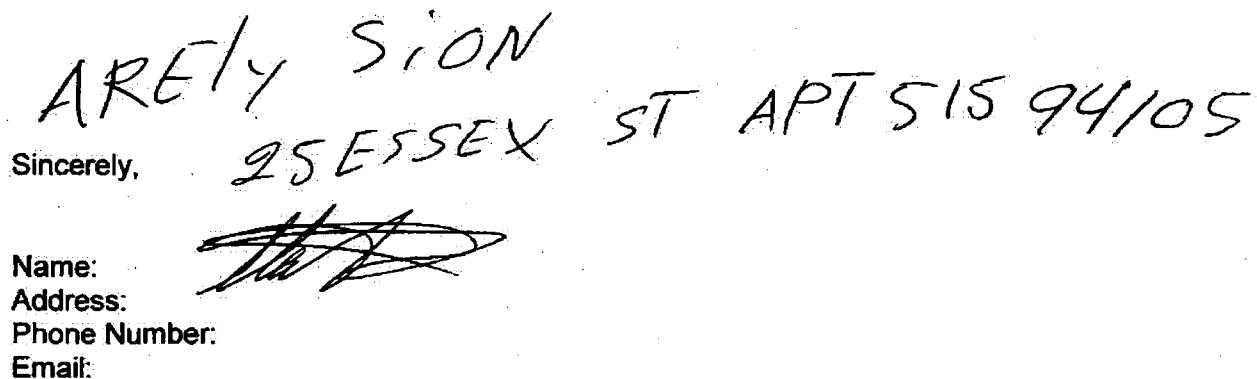 AREly SiON
25 ESSEX ST APT 515 94105
Sincerely,
Name:
Address:
Phone Number:
Email: